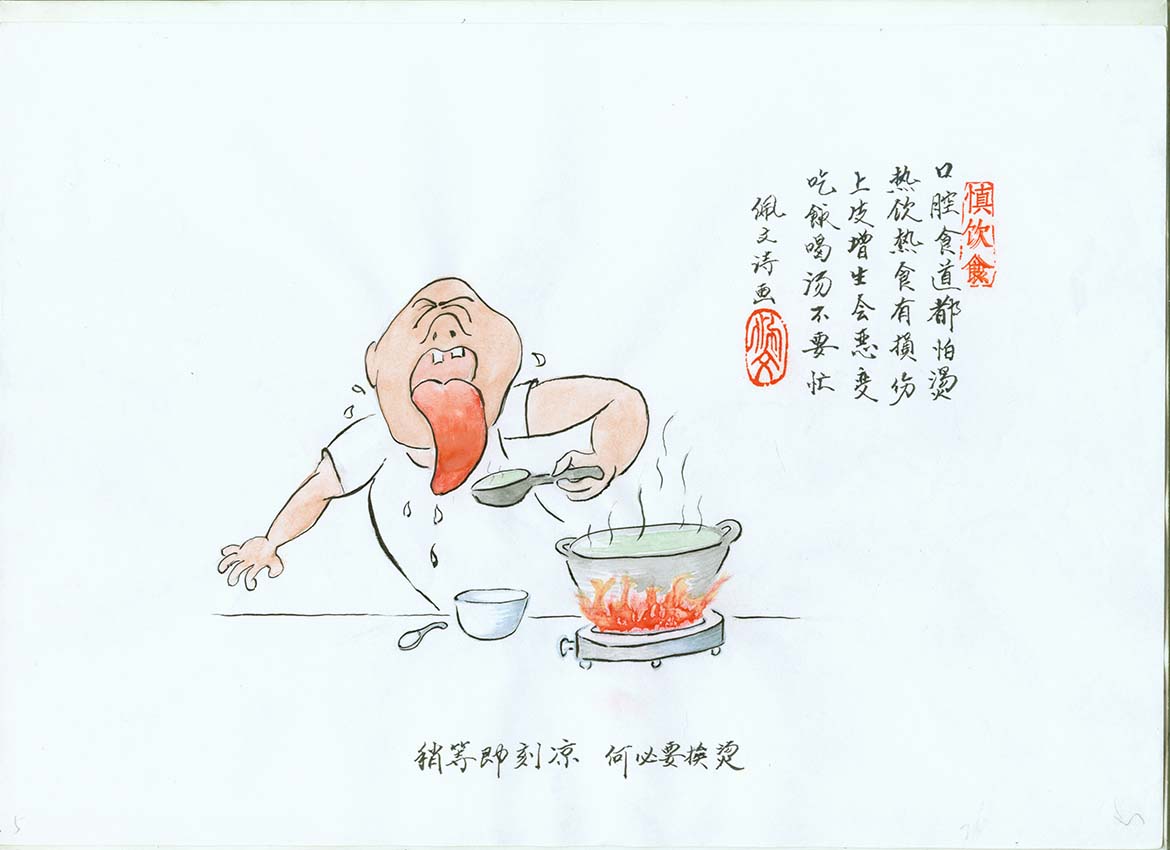 慎饮食
口腔食道都怕烫
热饮热食有損伤
上皮增生会恶变
吃饭喝汤不要忙
佩文诗画
稍等即刻凉 何必要挨烫